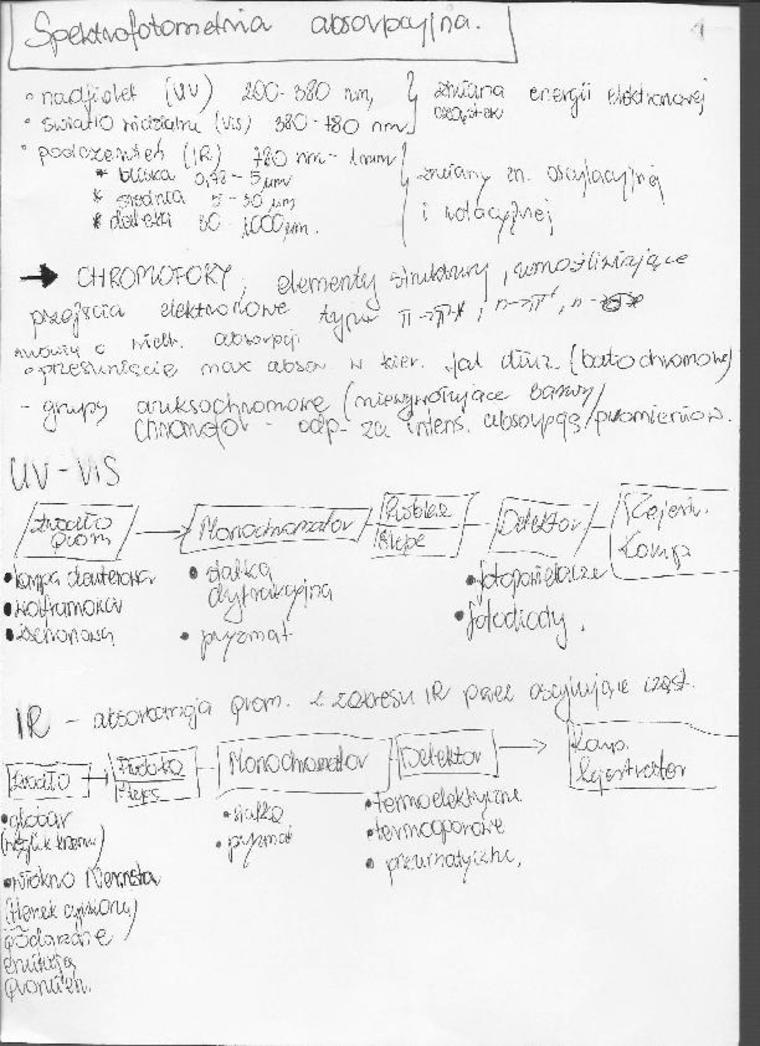 Spektrofotometria absorpcyjna.
1
◦ nadfiolet (UV) 200-380 nm, } zmiana energii elektronowej
◦ światło widzialne (VIS) 380-780 nm cząsteki
◦ podczerwień (IR) 780 nm - 1mm
* bliska 0,78-5 μm
* średnia 5-50 μm
* daleki 50 1000 μm.
zmiany en. oscylacyjnej
i rotacyjnej
→ CHROMOFORY, elementy struktury, umożliwiające
przejścia elektronowe typu π→π*, n→π*, n→σ*
mówią o absorpcji
◦ przesunięcie max absor. w kier. fal dłuż. (batochromowe)
- grupy auksochromowe (niewywołujące barwy)
chromofor - odp. za intens. absorpcją/promieniow.
UV-VIS
źródło prom. → Monochromator - Próbka/ślepe - Detektor - Rejestr. Komp
• lampa deuterowa
• wolframowa
• ksenonowa
• siatka dyfrakcyjna
• pryzmat
• fotopowielacze
• fotodiody.
IR - absorbancja prom. z zakresu IR przez oscylujące cząst.
źródło → Próbka/ślepa - Monochromator - Detektor → Komp. Rejestrator
• globar
(węglik krzemu)
• włókno Nernsta
(tlenek cyrkonu)
podgrzane
emitują
promień.
• siatka
• pryzmat
• termoelektryczne
• termooporowe
• pneumatyczne,